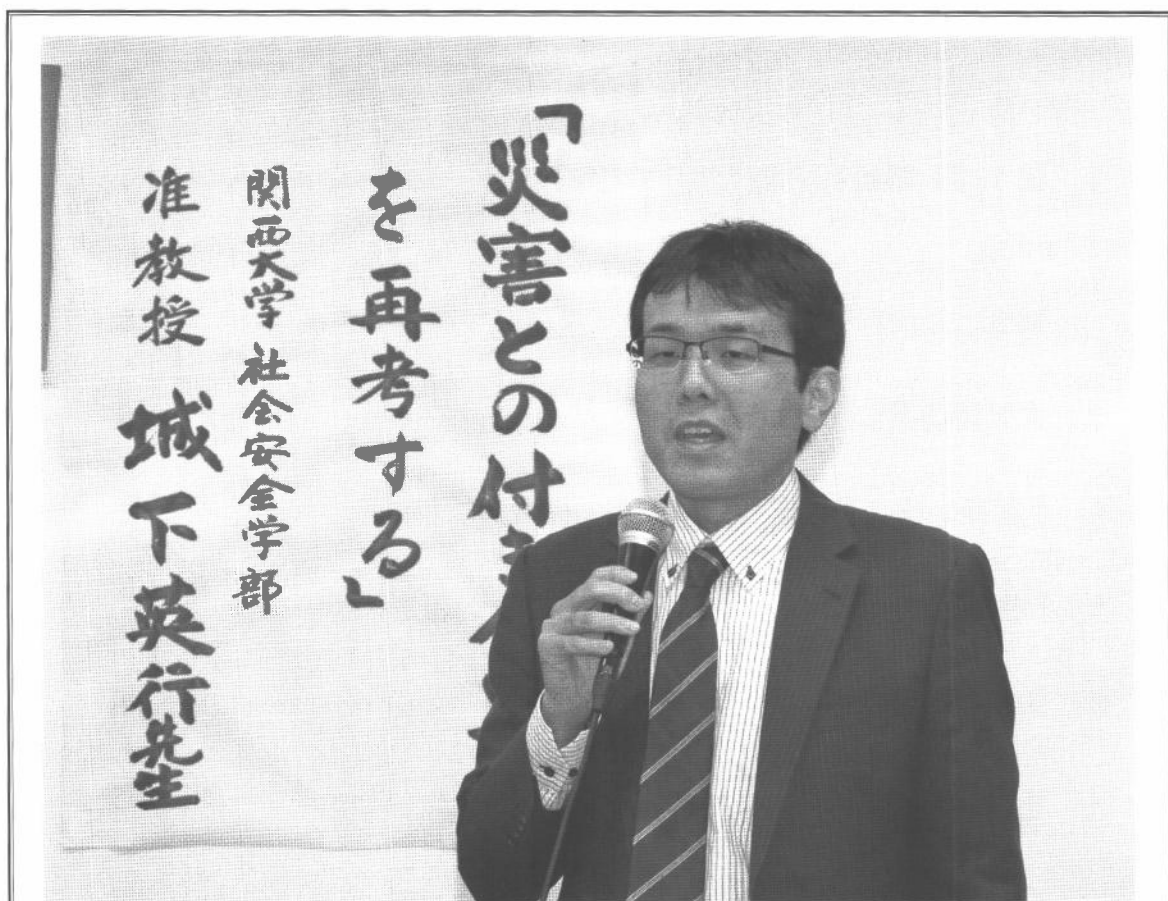 「災害との付き
を再考する」
関西大学 社会安全学部
准教授 城下英行先生